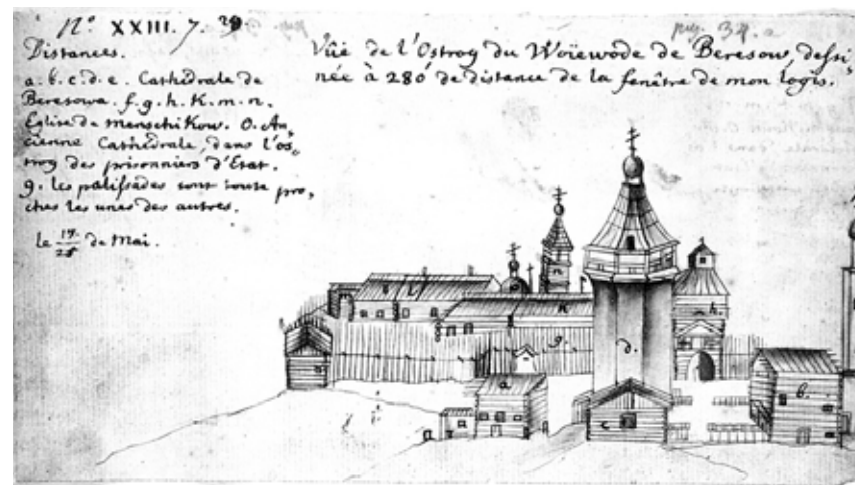 N.° XXIII. 7.
pag. 34. a
Distances.
a. b. c. d. e. Cathédrale de
Beresowa. f. g. h. K. m. n.
Eglise de Menschikow. O. An,
cienne Cathédrale, dans l'os,
trog des prisonniers d'Etat.
g. les palissades sont toute pro,
ches les unes des autres.
le 17/28 de Mai.
Vûë de l'Ostrog du Woïewode de Beresow, dessi,
née à 280' de distance de la fenêtre de mon logis.
l
K
h.
g.
d.
a
b.
c
i